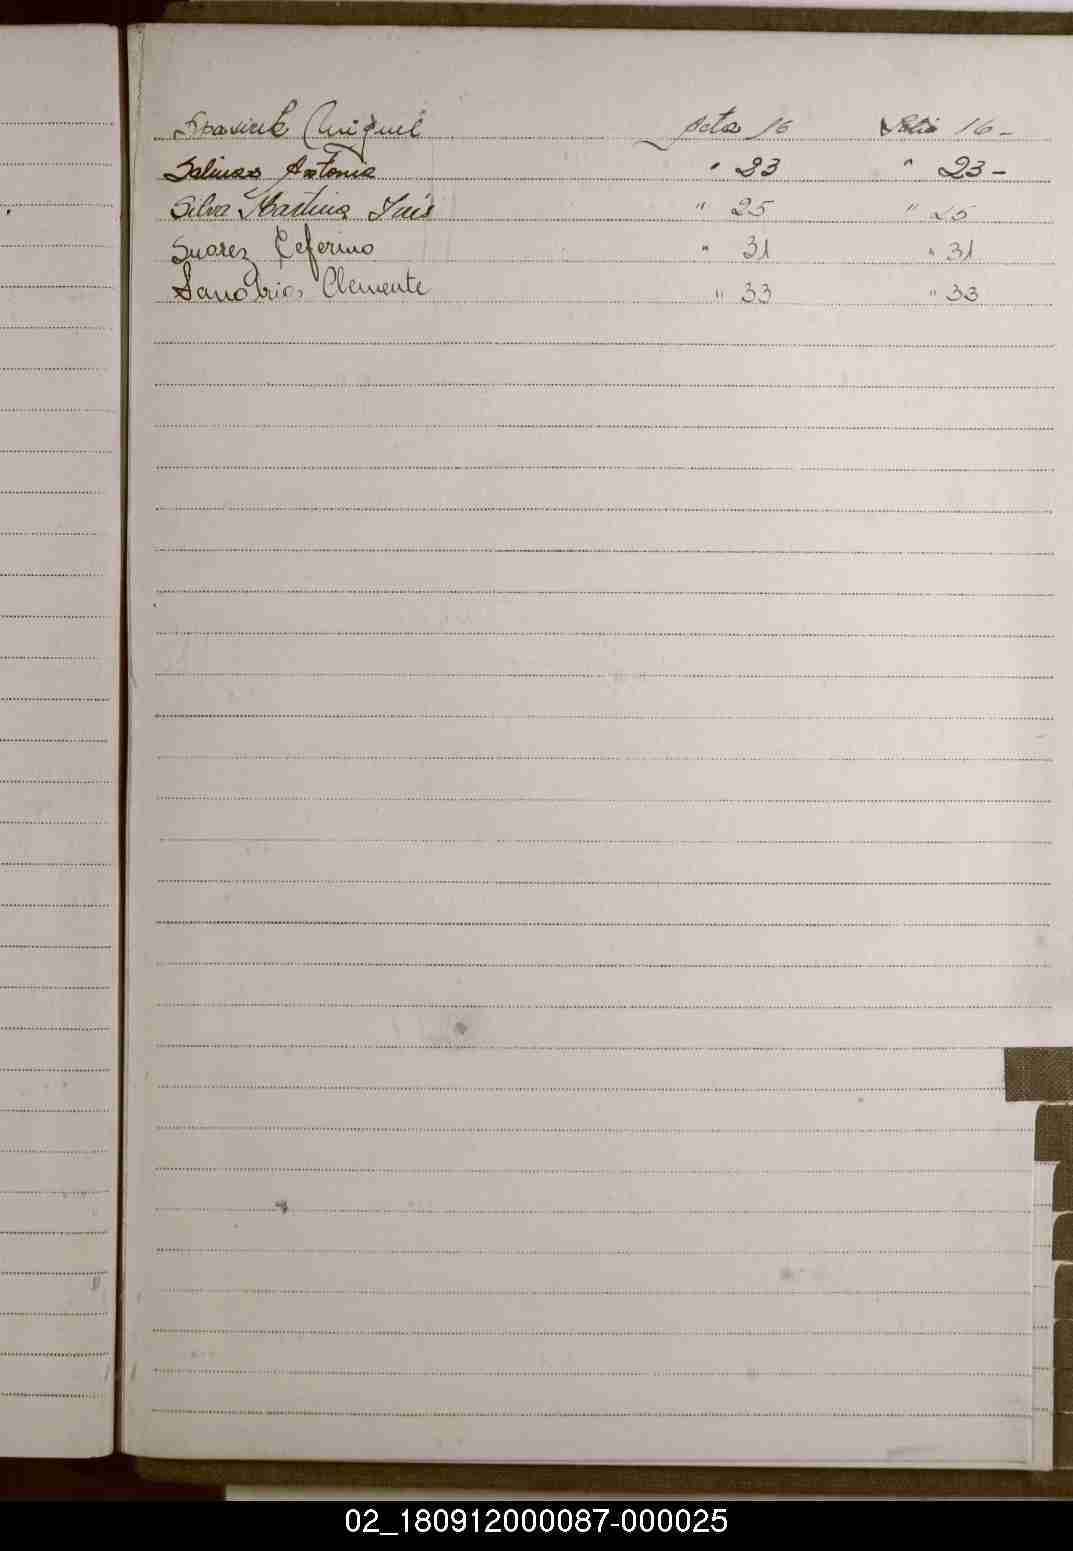 Spasiuk Miguel acta 16 Folio 16-
Salinas Antonia " 23 " 23-
Silva Martina Inés " 25 " 25
Suarez Ceferino " 31 " 31
Sanabria, Clemente " 33 " 33
02_180912000087-000025